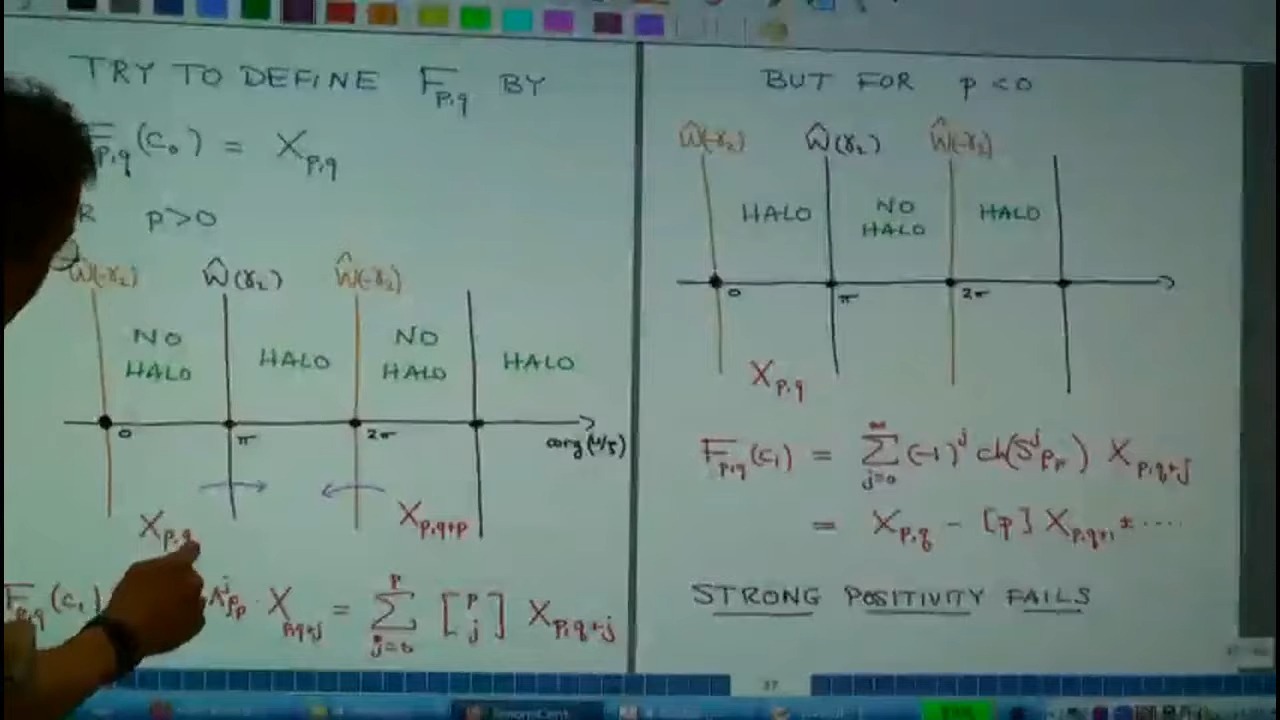 TRY TO DEFINE F_{p,q} BY
F_{p,q}(C_0) = X_{p,q}
p>0
Ŵ(-γ_2) Ŵ(γ_2) Ŵ(-γ_2)
NO HALO
HALO
NO HALO
HALO
0 π 2π
X_{p,q} X_{p,q+p}
F_{p,q}(C_1) Λ^jρ_p · X_{p,q+j} = \sum_{j=0}^{p} [p j] X_{p,q+j}
BUT FOR p<0
Ŵ(-γ_2) Ŵ(γ_2) Ŵ(-γ_2)
HALO
NO HALO
HALO
0 π 2π
X_{p,q}
F_{p,q}(C_1) = \sum_{j=0}^{∞} (-1)^j ch(S^jρ_p) X_{p,q+j}
= X_{p,q} - [p] X_{p,q+1} ± ....
STRONG POSITIVITY FAILS
37